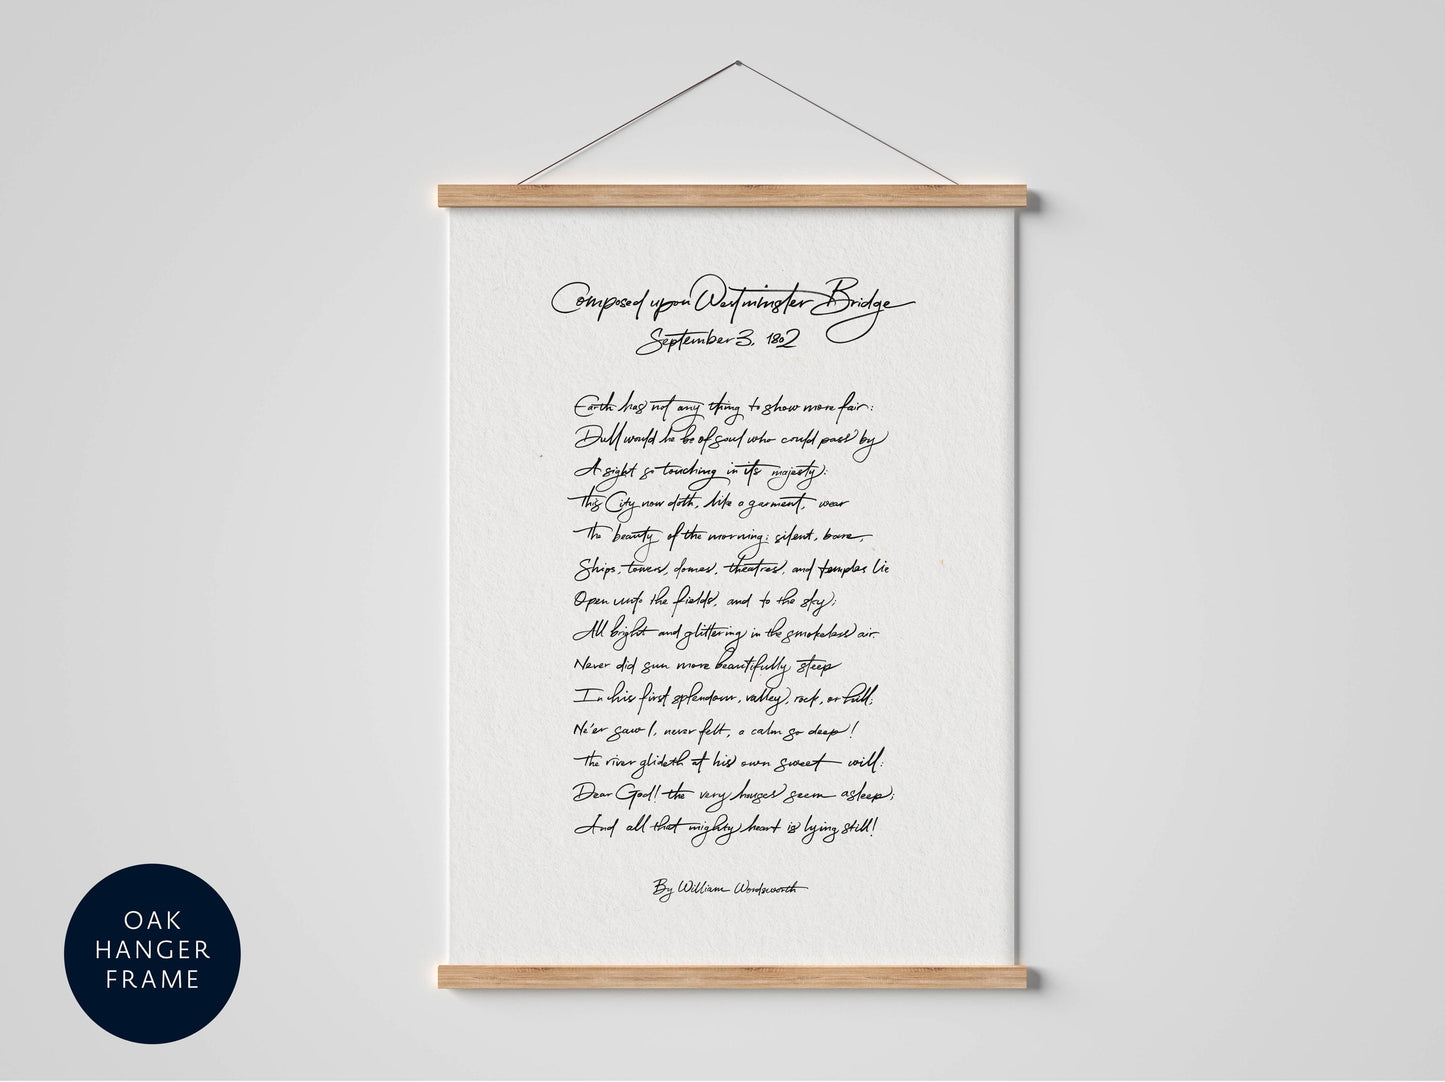 Composed upon Westminster Bridge
September 3, 1802
Earth has not any thing to show more fair:
Dull would he be of soul who could pass by
A sight so touching in its majesty:
This City now doth, like a garment, wear
The beauty of the morning; silent, bare,
Ships, towers, domes, theatres, and temples lie
Open unto the fields, and to the sky;
All bright and glittering in the smokeless air.
Never did sun more beautifully steep
In his first splendour, valley, rock, or hill;
Ne'er saw I, never felt, a calm so deep!
The river glideth at his own sweet will:
Dear God! the very houses seem asleep;
And all that mighty heart is lying still!
By William Wordsworth
OAK
HANGER
FRAME